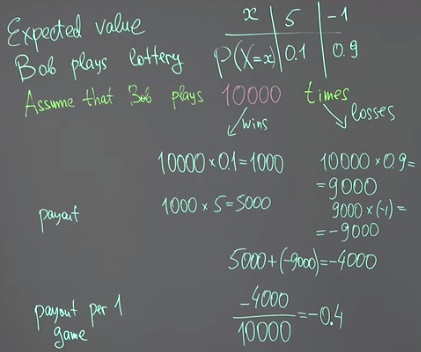 Expected value
x 5 -1
Bob plays lottery P(X=x) 0.1 0.9
Assume that Bob plays 10000 times
wins losses
10000×0.1=1000 10000×0.9=
=9000
payout 1000×5=5000 9000×(-1)=
=-9000
5000+(-9000)=-4000
payout per 1 game -4000/10000=-0.4